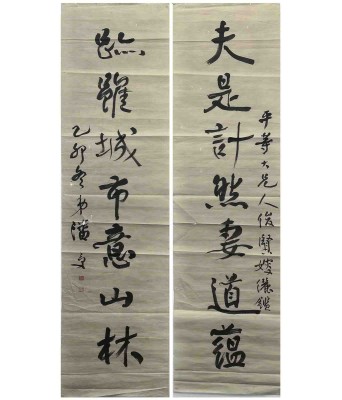 夫是計然妻道蘊
平等大兄人俊賢嫂儷鑑
跡雖城市意山林
乙卯冬弟潘受